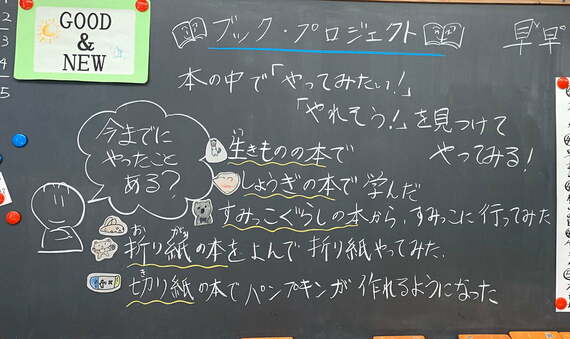 GOOD
&
NEW
1
2
3
4
5
ブック・プロジェクト
早早
本の中で「やってみたい!」
「やれそう!」を見つけて
やってみる!
今までに
やったこと
ある?
生きものの本で
しょうぎの本で学んだ
すみっこぐらしの本から、すみっこに行ってみた
折り紙の本をよんで折り紙やってみた.
切り紙の本でパンプキンが作れるようになった